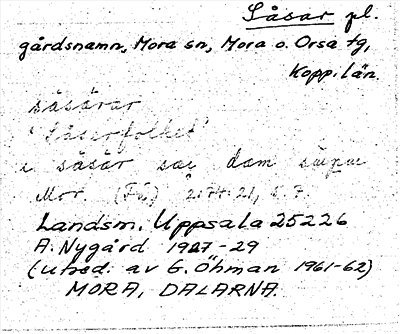 Såsar pl.
gårdsnamn, Mora sn, Mora o. Orsa tg,
Kopp. län.
såsårar
'Såserfolket'
i såsår sai dom
Mor. (Få) 2174:21, s. 7.
Landsm. Uppsala 25226
A. Nygård 1927-29
(utred. av G. Öhman 1961-62)
MORA, DALARNA.